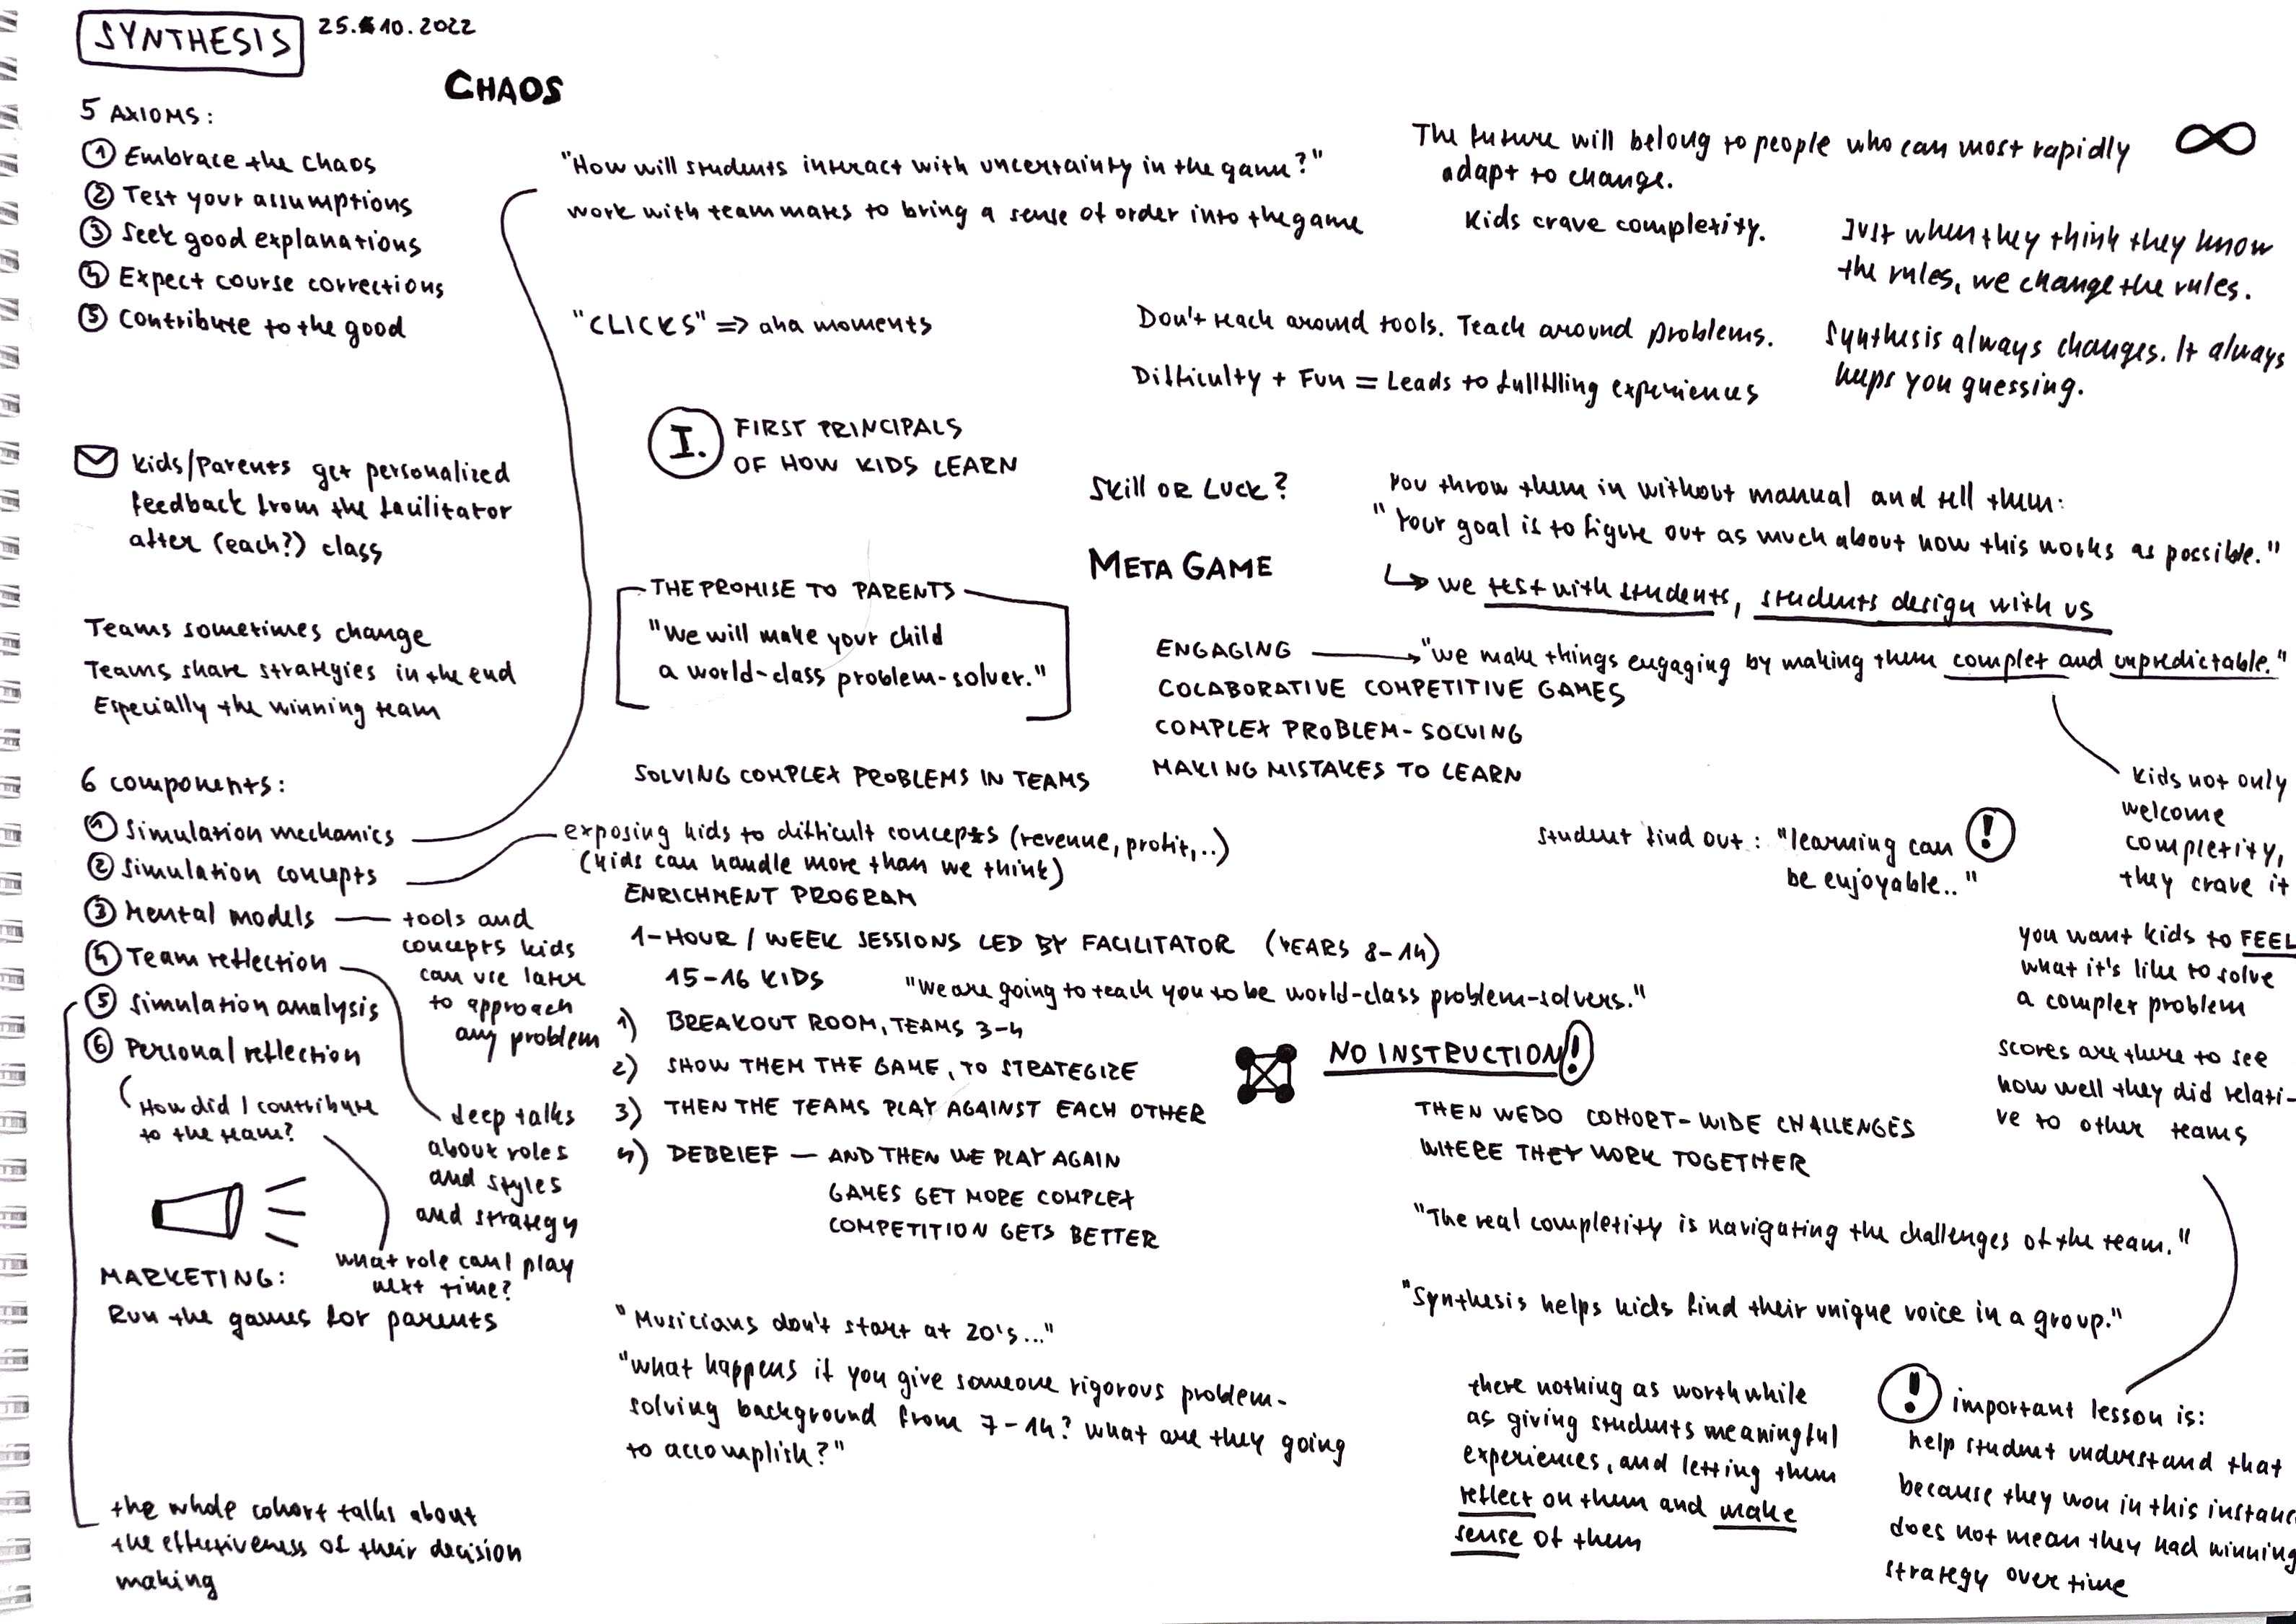 SYNTHESIS
25.10.2022
CHAOS
5 AXIOMS:
① Embrace the chaos
② Test your assumptions
③ Seek good explanations
④ Expect course corrections
⑤ Contribute to the good
"How will students interact with uncertainty in the game?"
work with teammates to bring a sense of order into the game
"CLICKS" => aha moments
The future will belong to people who can most rapidly
adapt to change.
∞
Kids crave complexity.
Just when they think they know
the rules, we change the rules.
Don't teach around tools. Teach around problems.
Difficulty + Fun = Leads to fullfilling experiences
Synthesis always changes. It always
keeps you guessing.
I.
FIRST PRINCIPALS
OF HOW KIDS LEARN
Kids/Parents get personalized
feedback from the facilitator
after (each?) class
Skill OR LUCK?
You throw them in without manual and tell them:
"Your goal is to figure out as much about how this works as possible."
↳ we test with students, students design with us
META GAME
THE PROMISE TO PARENTS
"We will make your child
a world-class problem-solver."
Teams sometimes change
Teams share strategies in the end
Especially the winning team
ENGAGING → "we make things engaging by making them complex and unpredictable."
COLABORATIVE COMPETITIVE GAMES
COMPLEX PROBLEM-SOLVING
MAKING MISTAKES TO LEARN
SOLVING COMPLEX PROBLEMS IN TEAMS
Kids not only
welcome
complexity,
they crave it
student find out: "learning can
be enjoyable.."
!
6 components:
① Simulation mechanics
② Simulation concepts
③ Mental models
④ Team reflection
⑤ Simulation analysis
⑥ Personal reflection
exposing kids to difficult concepts (revenue, profit,..)
(kids can handle more than we think)
tools and
concepts kids
can use later
to approach
any problem
How did I contribute
to the team?
deep talks
about roles
and styles
and strategy
what role can I play
next time?
ENRICHMENT PROGRAM
1-HOUR / WEEK SESSIONS LED BY FACILITATOR (YEARS 8-14)
15-16 KIDS
"We are going to teach you to be world-class problem-solvers."
1) BREAKOUT ROOM, TEAMS 3-4
2) SHOW THEM THE GAME, TO STRATEGIZE
3) THEN THE TEAMS PLAY AGAINST EACH OTHER
4) DEBRIEF — AND THEN WE PLAY AGAIN
GAMES GET MORE COMPLEX
COMPETITION GETS BETTER
NO INSTRUCTION!
THEN WE DO COHORT-WIDE CHALLENGES
WHERE THEY WORK TOGETHER
you want kids to FEEL
what it's like to solve
a complex problem
scores are there to see
how well they did relati-
ve to other teams
"The real complexity is navigating the challenges of the team."
"Synthesis helps kids find their unique voice in a group."
MARKETING:
Run the games for parents
"Musicians don't start at 20's..."
"What happens if you give someone rigorous problem-
solving background from 7-14? What are they going
to accomplish?"
there nothing as worthwhile
as giving students meaningful
experiences, and letting them
reflect on them and make
sense of them
! important lesson is:
help student understand that
because they won in this instanc
does not mean they had winning
strategy over time
the whole cohort talks about
the effectiveness of their decision
making